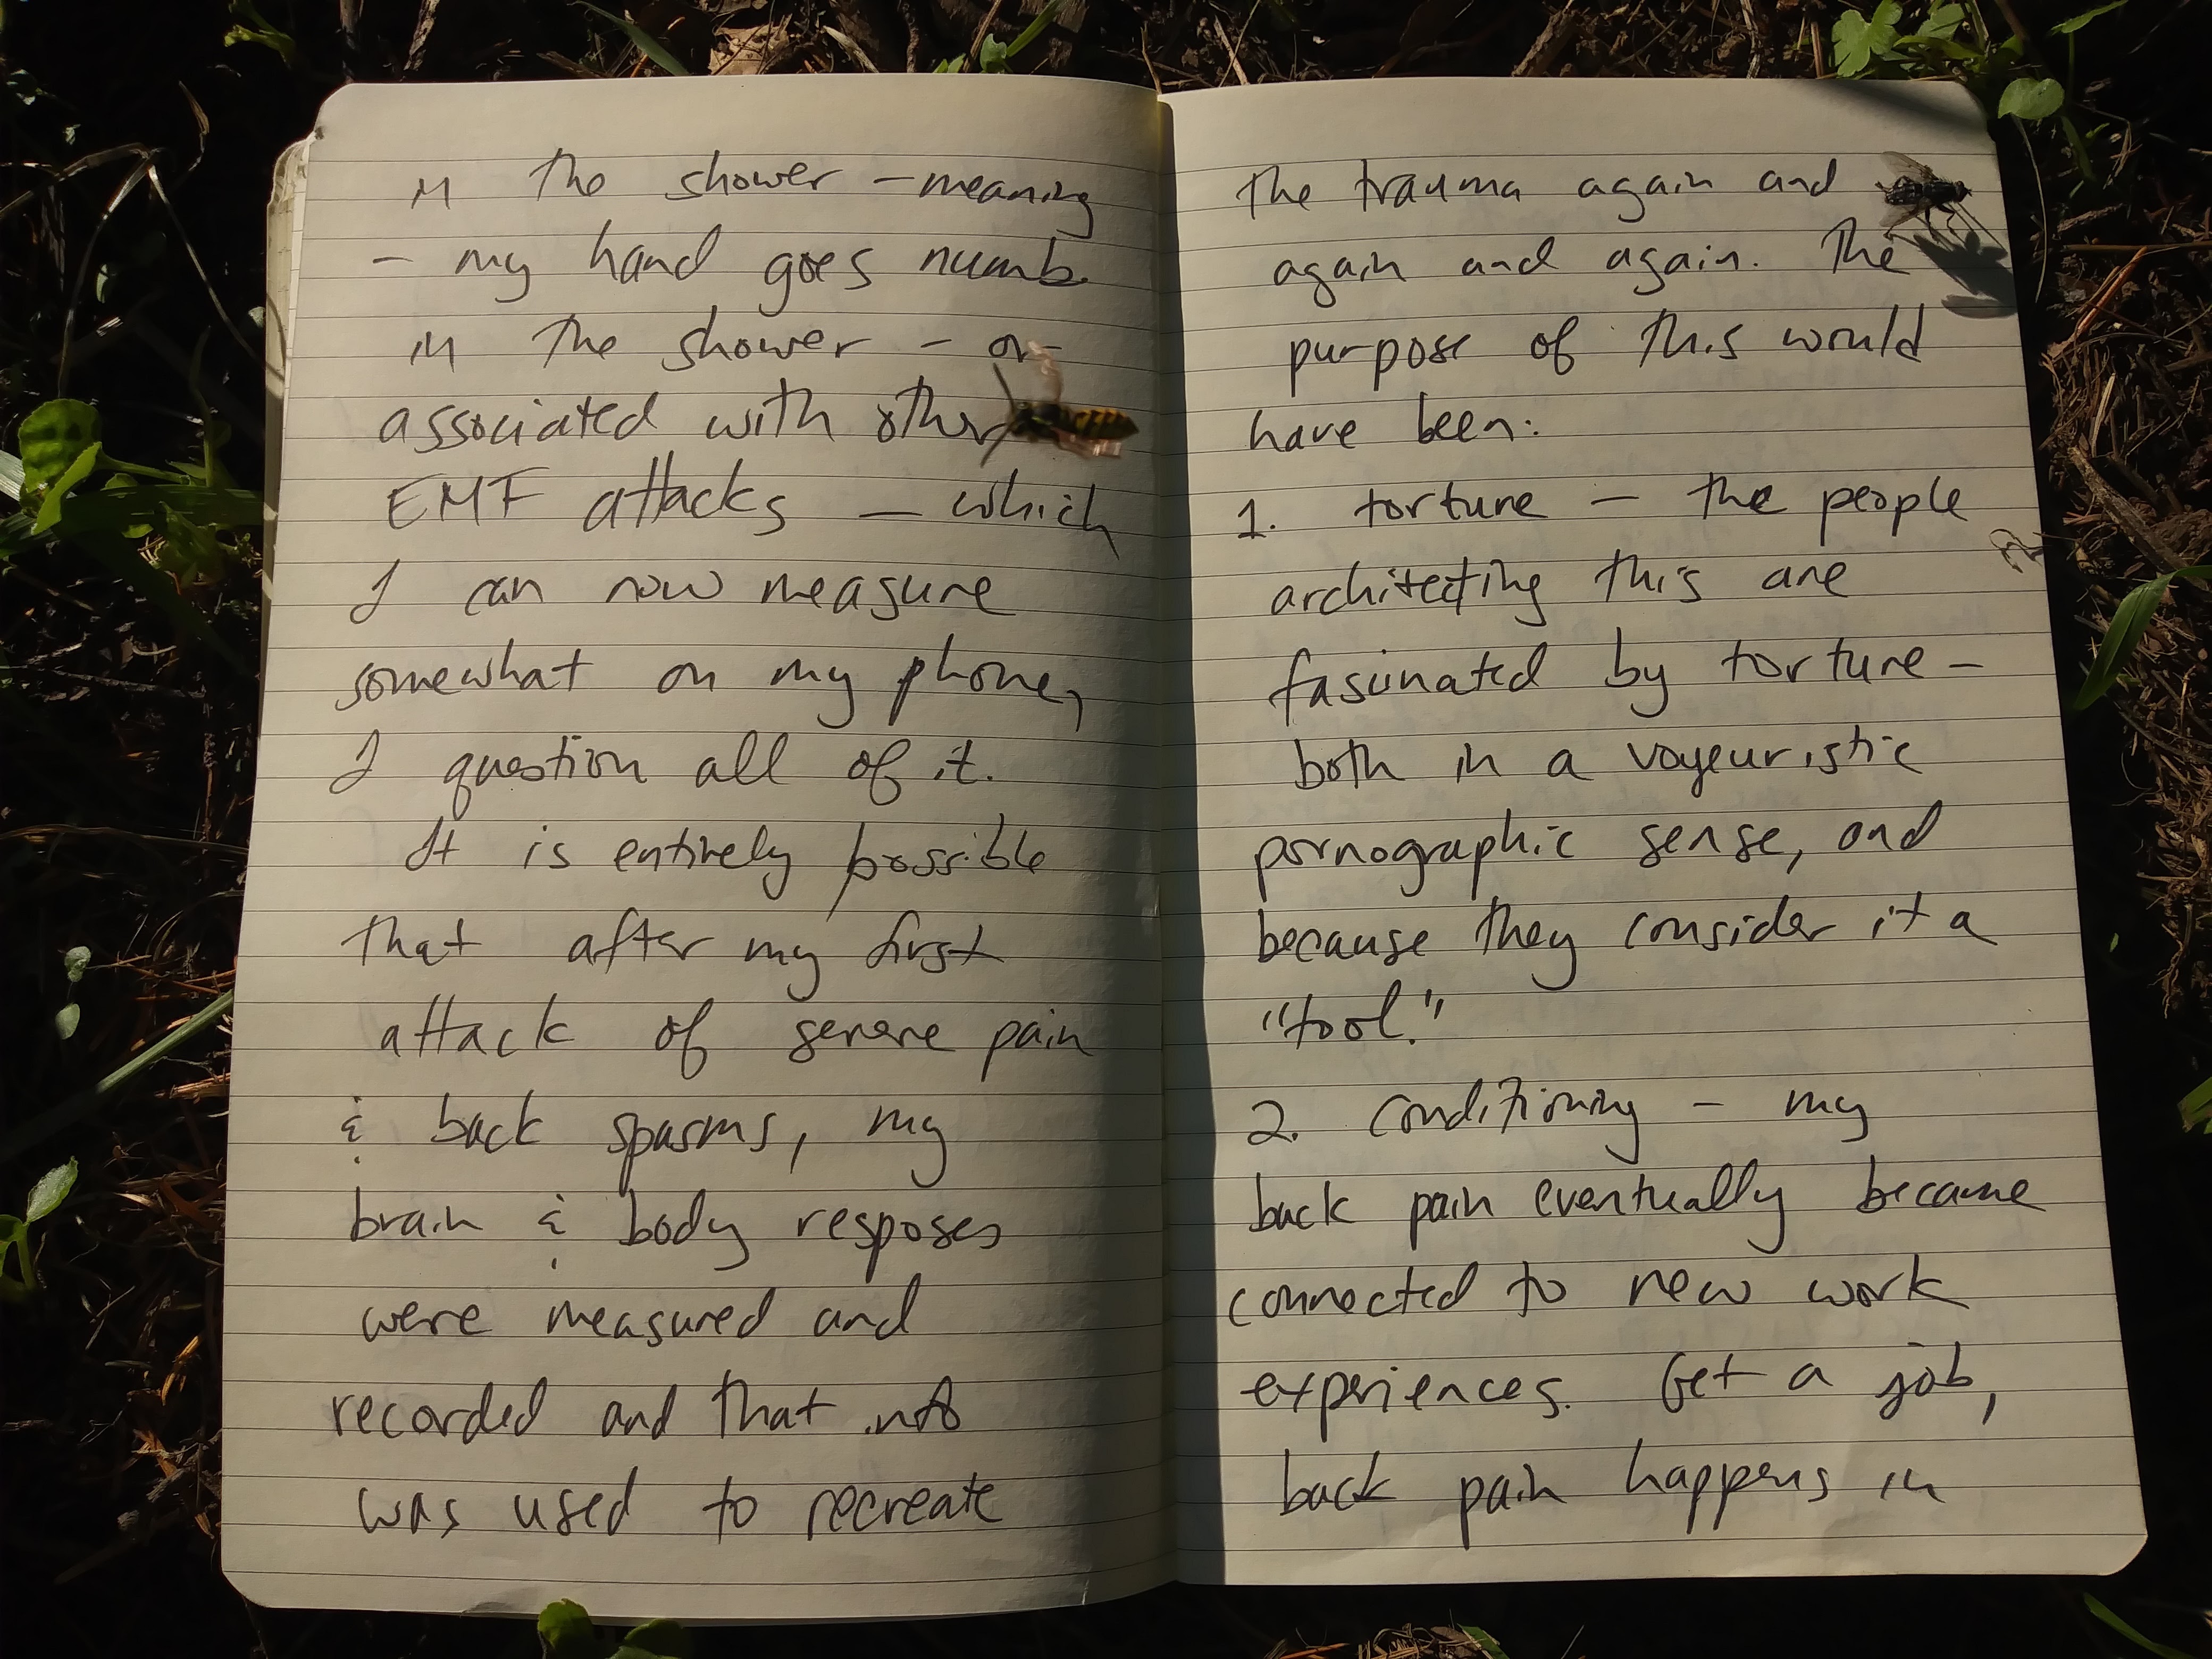 in the shower - meaning
- my hand goes numb
in the shower - or
associated with other
EMF attacks - which
I can now measure
somewhat on my phone,
I question all of it.
It is entirely possible
that after my first
attack of severe pain
& back spasms, my
brain & body resposes
were measured and
recorded and that info
was used to recreate
the trauma again and
again and again. The
purpose of this would
have been:
1. torture - the people
architecting this are
fascinated by torture -
both in a voyeuristic
pornographic sense, and
because they consider it a
"tool."
2. conditioning - my
back pain eventually became
connected to new work
experiences. Get a job,
back pain happens in